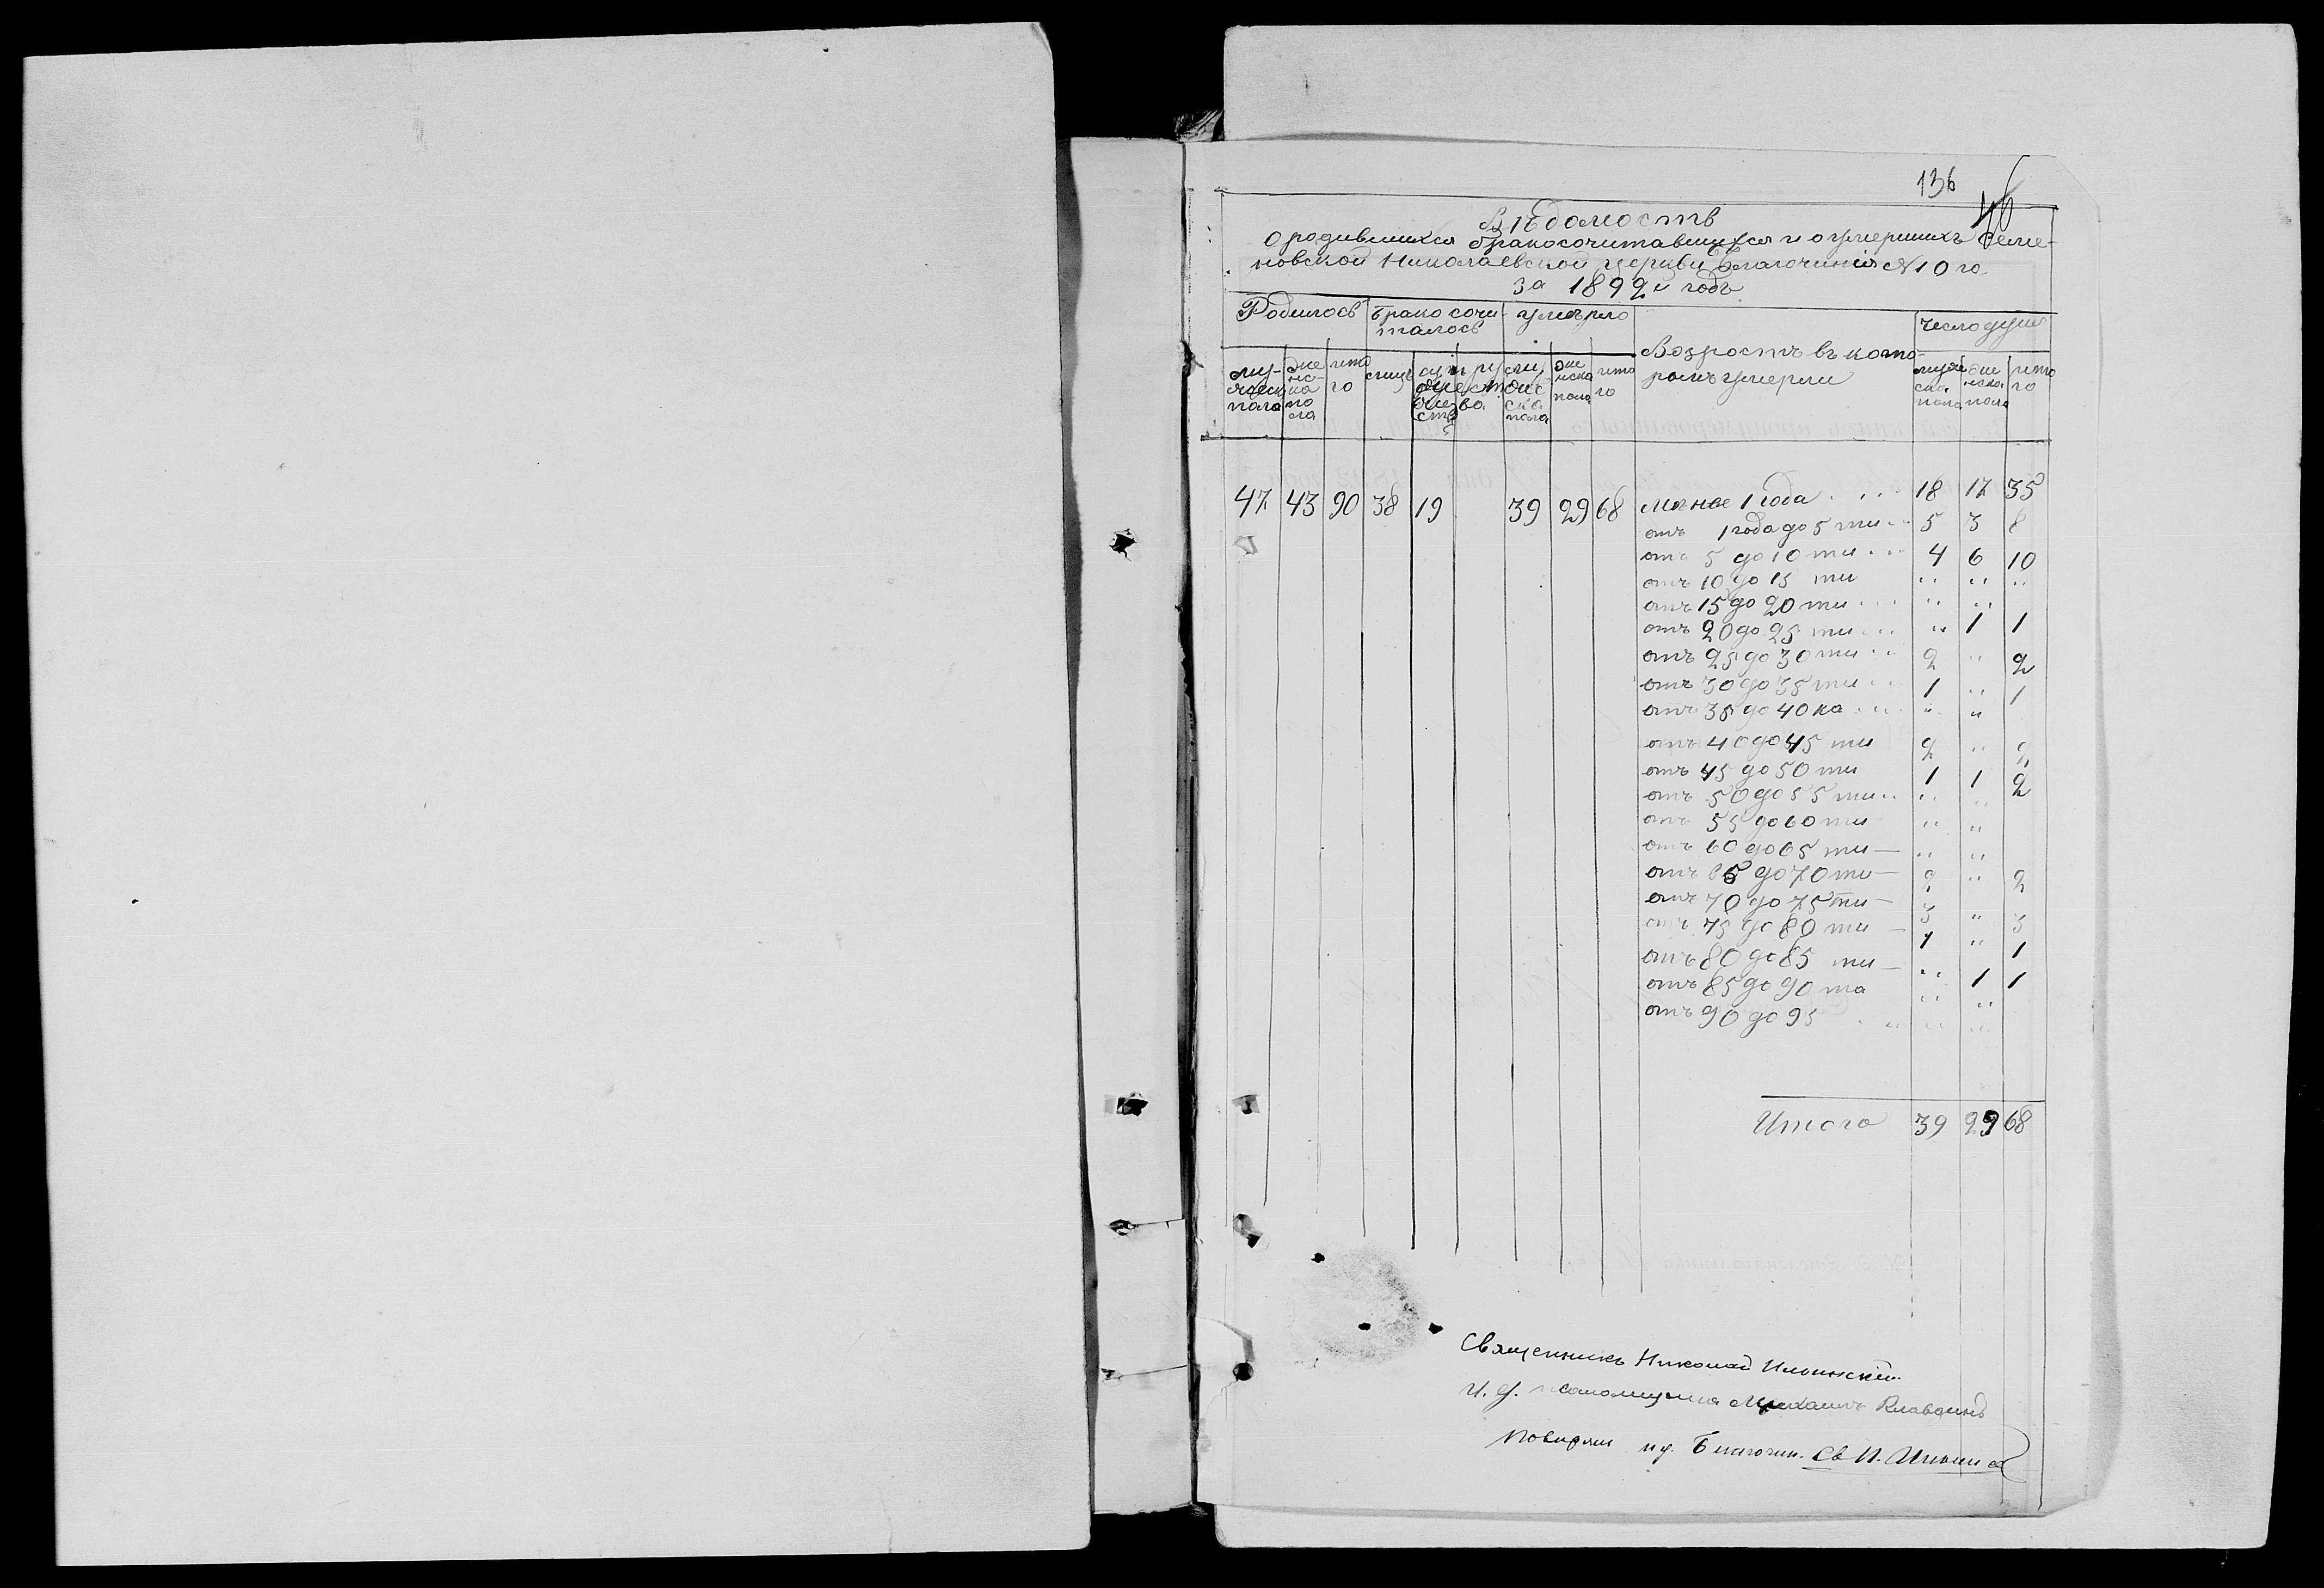 136
46
Вѣдомость
О родившихся бракосочитавшихся и о умершихъ Семе-
новской Николаевской церкви Благочинія № 10 го
за 1892й годъ
Родилось Брако сочи- умерло Число душъ
талось
Возрость въ кото-
ромъ умерли
муж- женс- ито лицъ муж- женска ито муж женска ито
скаго ка по го супру жест ска пола го ска пола го
пола ла жествъ ва пола пола
47 43 90 38 19 39 29 68 Менее 1 года 18 17 35
отъ 1 года до 5 ти 5 3 8
отъ 5 до 10 ти 4 6 10
отъ 10 до 15 ти " " "
отъ 15 до 20 ти " "
отъ 20 до 25 ти " 1 1
отъ 25 до 30 ти 2 " 2
отъ 30 до 35 ти 1 " 1
отъ 35 до 40 ка " "
отъ 40 до 45 ти 2 " 2
отъ 45 до 50 ти 1 1 2
отъ 50 до 55 ти " "
отъ 55 до 60 ти " "
отъ 60 до 65 ти — " "
отъ 65 до 70 ти — 2 " 2
отъ 70 до 75 ти — 3 " 3
отъ 75 до 80 ти — 1 " 1
отъ 80 до 85 ти — " 1 1
отъ 85 до 90 та " "
отъ 90 до 95 " " "
Итого 39 29 68
Священникъ Николай Ильинскій
И. д. псаломщика Михаилъ Клавдинъ
Поверял и д. Благочин. Св. И.